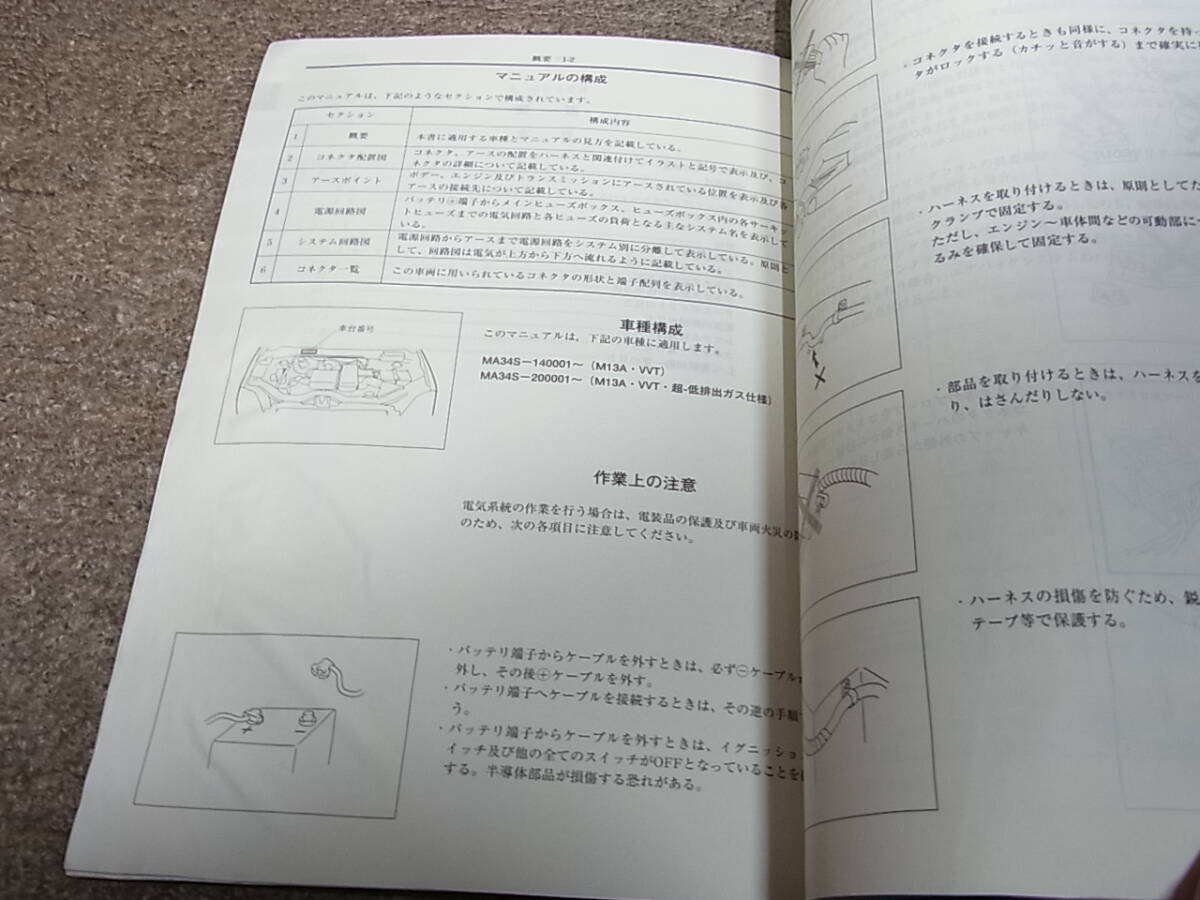 概要 1-2
マニュアルの構成
このマニュアルは、下記のようなセクションで構成されています。
セクション 構成内容
1 概要 本書に適用する車種とマニュアルの見方を記載している。
2 コネクタ配置図 コネクタ、アースの配置をハーネスと関連付けてイラストと記号で表示及び、コ
ネクタの詳細について記載している。
3 アースポイント ボデー、エンジン及びトランスミッションにアースされている位置を表示及び各
アースの接続先について記載している。
4 電源回路図 バッテリ+端子からメインヒューズボックス、ヒューズボックス内の各サーキッ
トヒューズまでの電気回路と各ヒューズの負荷となる主なシステム名を表示して
いる。
5 システム回路図 電源回路からアースまで電源回路をシステム別に分離して表示している。原則と
して、回路図は電気が上方から下方へ流れるように記載している。
6 コネクタ一覧 この車両に用いられているコネクタの形状と端子配列を表示している。
車台番号
車種構成
このマニュアルは、下記の車種に適用します。
MA34S－140001～（M13A・VVT）
MA34S－200001～（M13A・VVT・超-低排出ガス仕様）
作業上の注意
電気系統の作業を行う場合は、電装品の保護及び車両火災の
のため、次の各項目に注意してください。
・バッテリ端子からケーブルを外すときは、必ず⊖ケーブル
外し、その後⊕ケーブルを外す。
・バッテリ端子へケーブルを接続するときは、その逆の手順
う。
・バッテリ端子からケーブルを外すときは、イグニッション
イッチ及び他の全てのスイッチがOFFとなっていることを
する。半導体部品が損傷する恐れがある。
+ −
・コネクタを接続するときも同様に、コネクタを持っ
タがロックする（カチッと音がする）まで確実に
・ハーネスを取り付けるときは、原則としてた
クランプで固定する。
ただし、エンジン～車体間などの可動部に
るみを確保して固定する。
・部品を取り付けるときは、ハーネスを
り、はさんだりしない。
・ハーネスの損傷を防ぐため、鋭
テープ等で保護する。